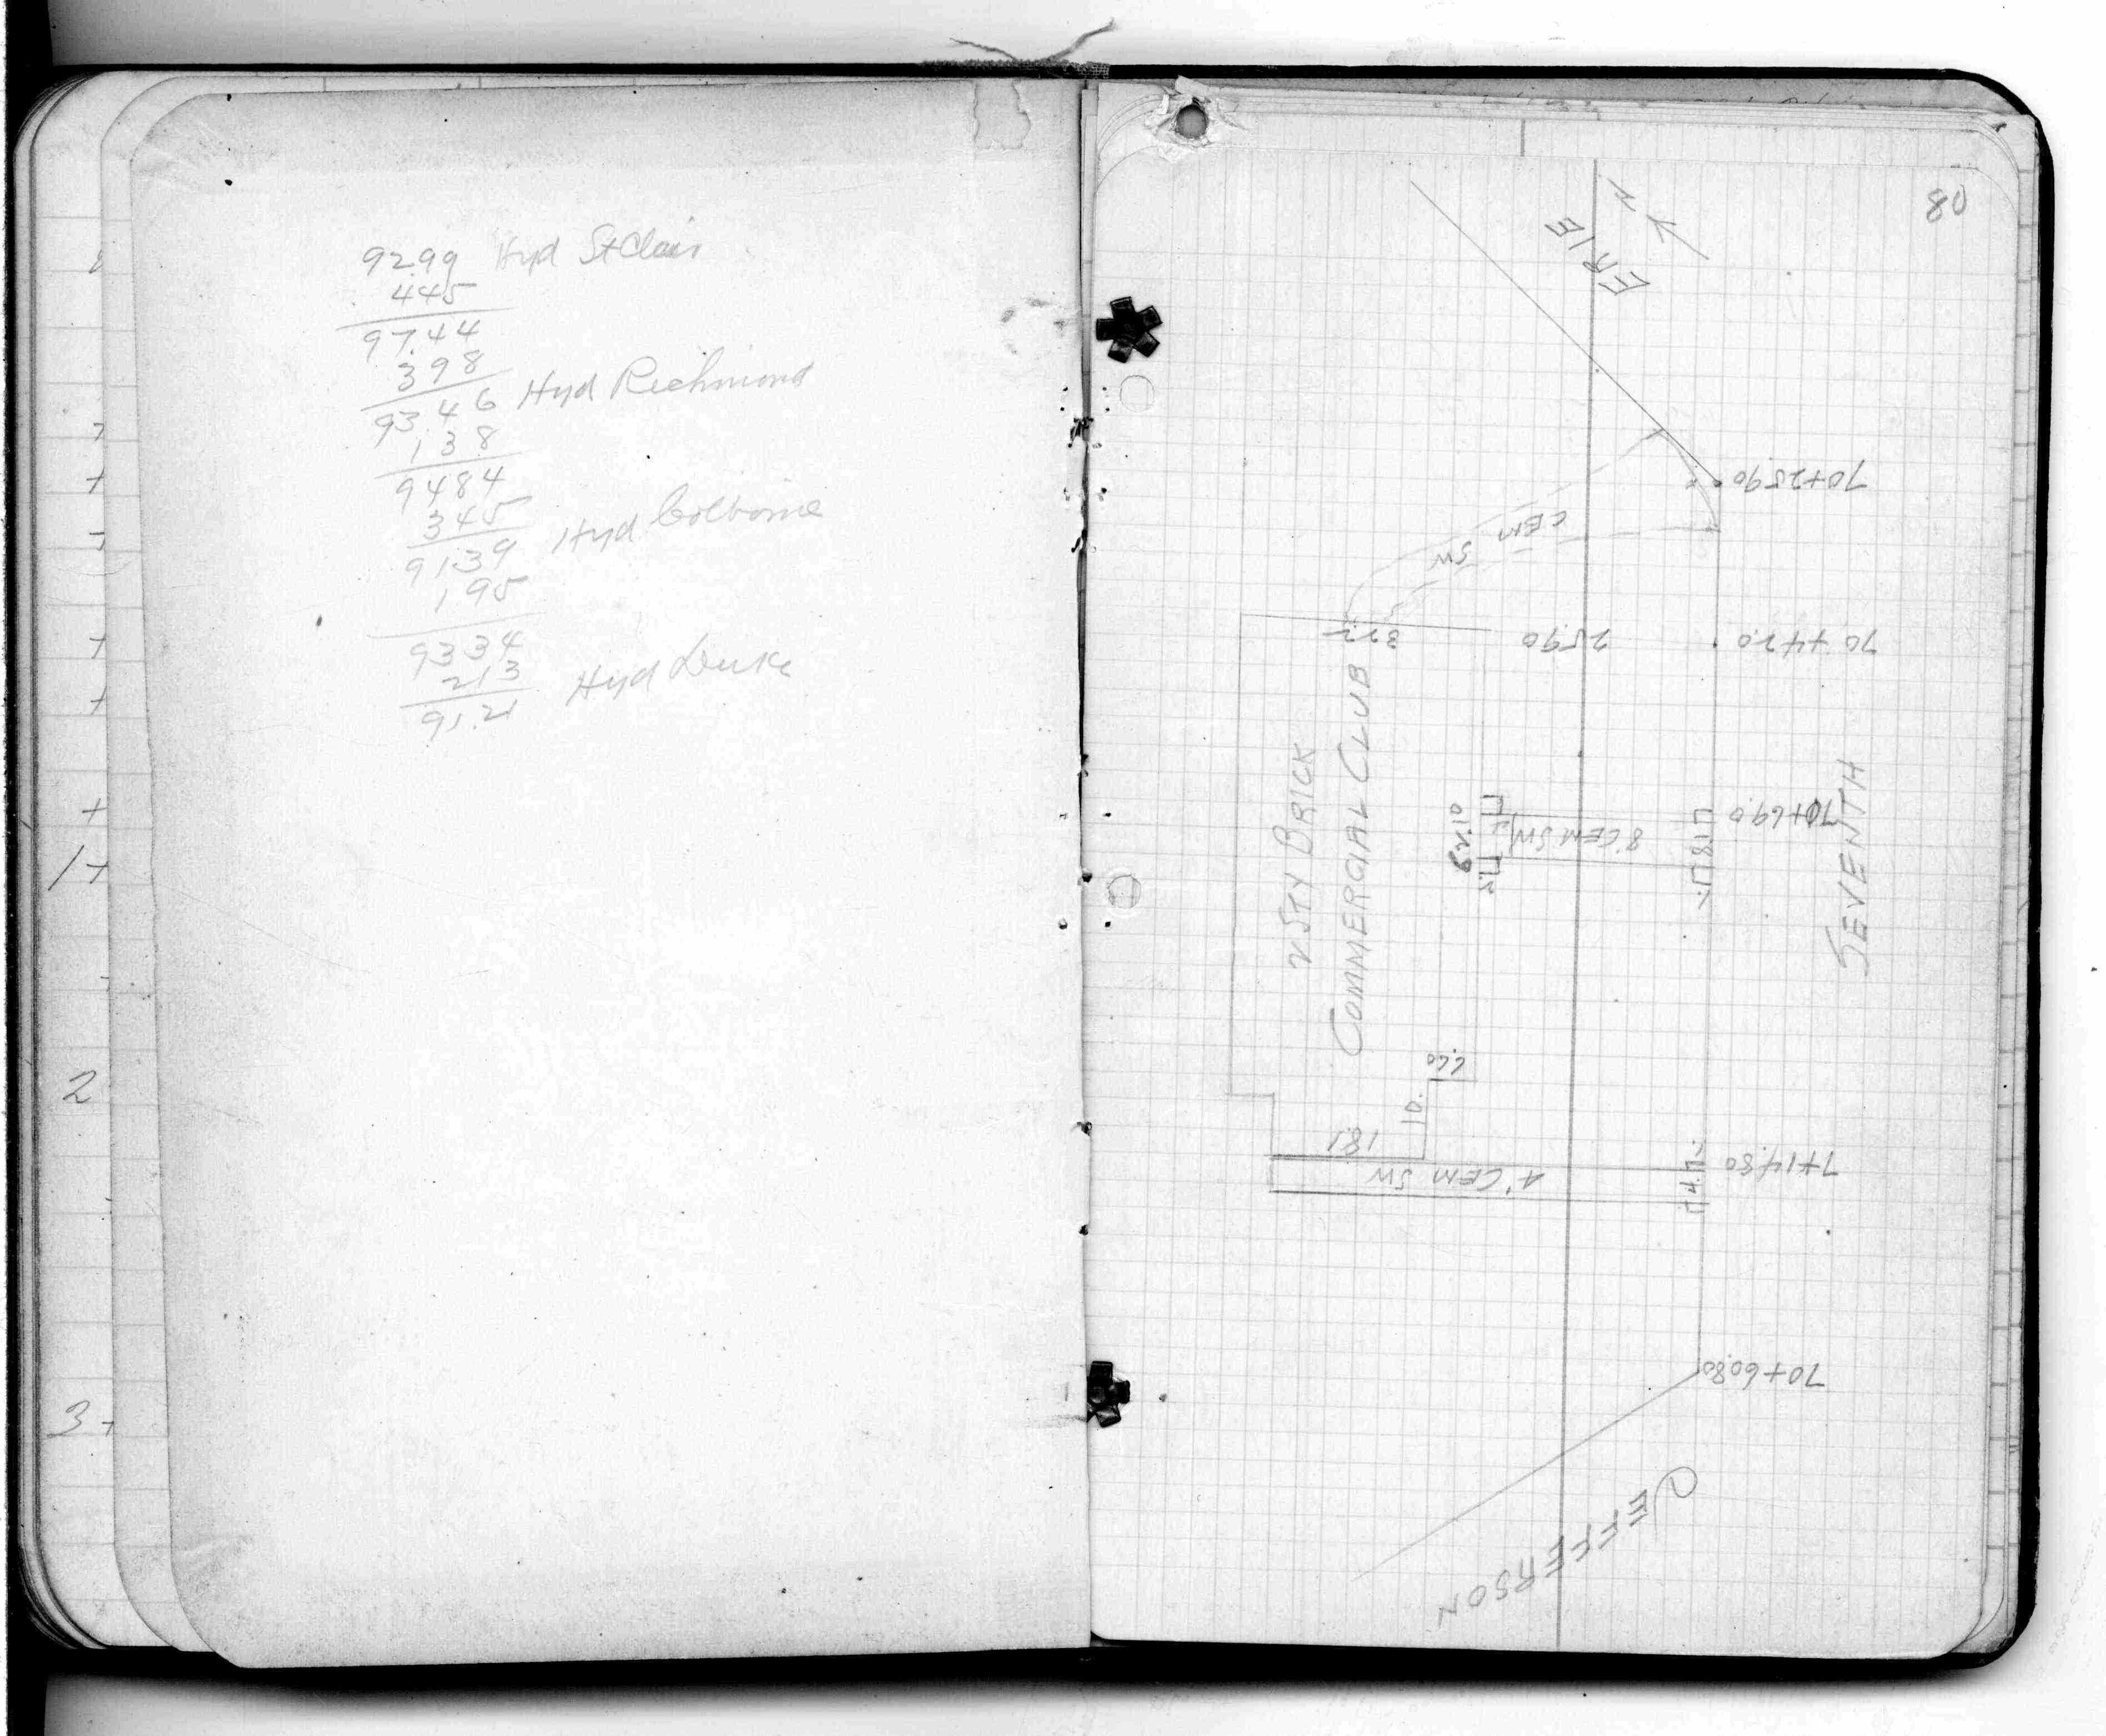 92.99 Hyd St Clair
445
97.44
398
93.46 Hyd Richmond
138
9484
345
91.39 Hyd Colborne
195
9334
213 Hyd Duke
91.21
1+
2
3+
80
N
ERIE
70+25.90
CEM
SW
70+42.0
25.90
32.2
2 STY BRICK
COMMERCIAL CLUB
70+69.0
8' CEM SW
SEVENTH
6.60
10.
18.1
4' CEM SW
7+14.80
70+60.80
JEFFERSON